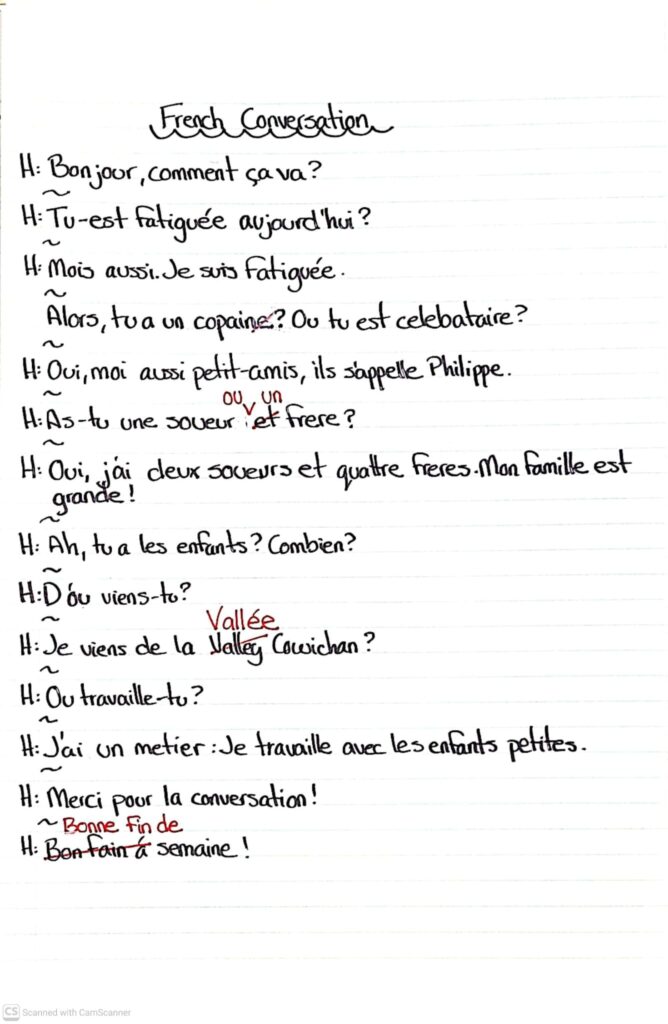 French Conversation
H: Bonjour, comment ça va?
~
H: Tu-est fatiguée aujourd'hui?
~
H: Mois aussi. Je suis fatiguée.
~
Alors, tu a un copaine? Ou tu est celebataire?
~
H: Oui, moi aussi petit-amis, ils s'appelle Philippe.
~
ou un
H: As-tu une soueur et frere?
~
H: Oui, j'ai deux soueurs et quattre freres. Mon famille est
grande!
~
H: Ah, tu a les enfants? Combien?
~
H: D'óu viens-tu?
~
Vallée
H: Je viens de la Valley Cowichan?
~
H: Ou travaille-tu?
~
H: J'ai un metier: Je travaille avec les enfants petites.
~
H: Merci pour la conversation!
~ Bonne fin de
H: Bon fain á semaine!
CS Scanned with CamScanner